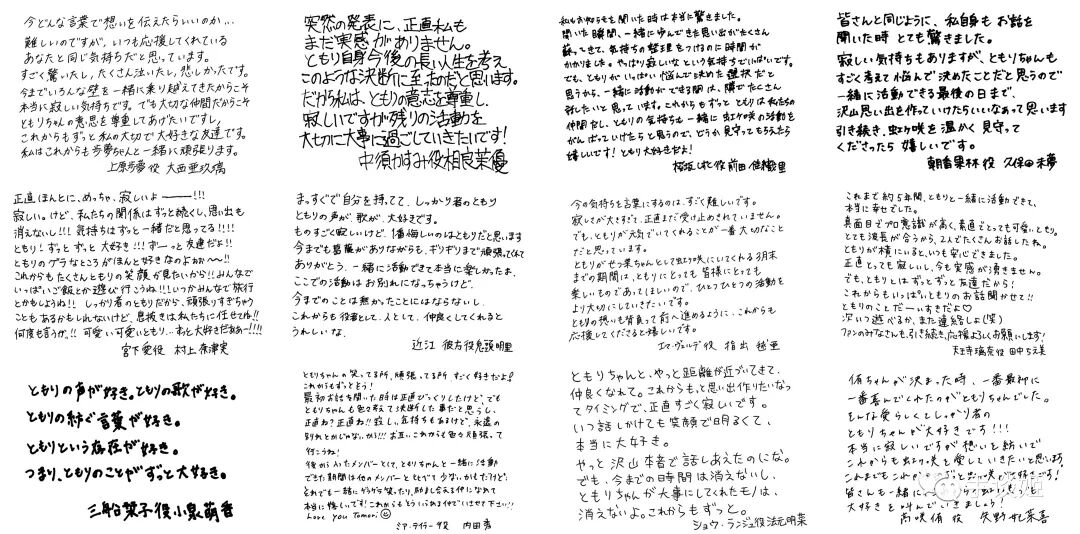 今どんな言葉で想いを伝えたらいいのか…
難しいのですが、いつも応援してくれている
あなたと同じ気持ちだと思っています。
すごく驚いたし、たくさん泣いたし、悲しかったです。
今までいろんな壁を一緒に乗り越えてきたからこそ
本当に寂しい気持ちです。でも大切な仲間だからこそ
ともりちゃんの意思を尊重してあげたいですし、
これからもずっと私の大切で大好きな友達です。
私はこれからも歩夢ちゃんと一緒に頑張ります。
上原歩夢役 大西亜玖璃
突然の発表に、正直私も
まだ実感がありません。
ともり自身今後の長い人生を考え
このような決断に至ったのだと思います。
だから私は、ともりの意志を尊重し、
寂しいですが残りの活動を
大切に大事に過ごしていきたいです!
中須かすみ役相良茉優
私もお知らせを聞いた時は本当に驚きました。
聞いた瞬間、一緒に歩んできた思い出がたくさん
蘇ってきて、気持ちの整理をつけるのに時間が
かかりました。やっぱり寂しいなという気持ちでいっぱいです。
でも、ともりがいっぱい悩んで決めた選択だと
思うから、一緒に活動ができる間は、隣でたくさん
対したいと思っています。これからもずっとともりは私たちの
仲間だし、ともりの気持ちも一緒に虹ヶ咲の活動を
がんばっていけたらと思うので、どうか見守ってもらえたら
嬉しいです!ともり大好きだよ!
桜坂しずく役 前田佳織里
皆さんと同じように、私自身もお話を
聞いた時とても驚きました。
寂しい気持ちもありますが、ともりちゃんも
すごく考えて悩んで決めたことだと思うので
一緒に活動できる最後の日まで、
沢山思い出を作っていけたらいいなぁって思います
引き続き、虹ヶ咲を温かく見守って
くださったら嬉しいです。
朝香果林役 久保田未夢
正直ほんとに、めっちゃ、寂しいよ――!!!
寂しい。けど、私たちの関係はずっと続くし、思い出も
消えないし!!! 気持ちはずっと一緒だと思ってる!!!!
ともり!ずっとずっと大好き!!! ずーっと友達だよ!!
ともりのゲラなところがほんと好きなのよぉぉ〜!!
これからもたくさんともりの笑顔が見たいから!!みんなで
いっぱいご飯とか遊びに行こうね!!!いつかみんなで旅行
とかもしようね!! しっかり者のともりだから、頑張りすぎちゃう
こともあるかもしれないけど、息抜きは私たちに任せてね!!
何度も言うが!! 可愛い可愛いともり…ずっと大好きだぁぁー!!!!
宮下愛役 村上奈津実
まっすぐで自分を持ってて、しっかり者のともり
ともりの声が、歌が、大好きです。
ものすごく寂しいけど、1番悔しいのはともりだと思います
今までも葛藤がありながらも、ギリギリまで頑張ってくれて
ありがとう。一緒に活動できて本当に楽しかったよ。
ここでの活動はお別れになっちゃうけど、
今までのことは無かったことにはならないし、
これからも役者として、人として、仲良くしてくれると
うれしいな。
近江彼方役鬼頭明里
今の気持ちを言葉にするのは、すごく難しいです。
寂しさが大きすぎて、正直まだ受け止めきれていません。
でも、ともりが元気でいてくれることが一番大切なこと
だと思っています。
ともりがせつ菜ちゃんとして虹ヶ咲にいてくれる3月末
までの期間は、ともりにとっても皆様にとっても
楽しいものであってほしいので、ひとつひとつの活動を
より大切にしていきたいです。
ともりの想いも背負って前へ進めるように、これからも
応援してくださると嬉しいです。
エマ・ヴェルデ役 指出毬亜
これまで約5年間、ともりと一緒に活動できて、
本当に幸せでした。
真面目でプロ意識が高く、素直でとっても可愛いともり。
とても波長が合うから、2人でたくさんお話したね。
ともりが横にいると、いつも安心できました。
正直とっても寂しいし、今も実感が湧きません。
でも、ともりとはずっとずっと友達だから!
これからもいっぱい、ともりのお話聞かせて!!
ともりのことだーいすきだよ♡
次いつ遊べるか、また連絡しよ(笑)
ファンのみなさんも、引き続き、応援よろしくお願いします!
天王寺璃奈役 田中ちえ美
ともりの声が好き。ともりの歌が好き。
ともりの紡ぐ言葉が好き。
ともりという存在が好き。
つまり、ともりのことがずっと大好き。
三船栞子役小泉萌香
ともりちゃんの笑ってる所、頑張ってる所すごく好きだよ!
これからもずっとそう!
最初お話を聞いた時は正直びっくりしたけど、でも
ともりちゃんも色々考えて決断した事だと思うし、
正直ね?正直ね!!寂しい気持ちもあるけど、永遠の
別れとかじゃないから!!!お互いこれからも色々頑張って
行こうね!
後から入ったメンバーとして、ともりちゃんと一緒に活動
できた期間は他のメンバーと比べて少ないかもだけど、
それでも一緒にゲラゲラ笑ったり、励まし合える仲になれて
本当に嬉しいです!これからもよろしくね
Love you Tomori
ミア・テイラー役 内田秀
ともりちゃんと、やっと距離が近づいてきて、
仲良くなれて。これからもっと思い出作りたいなって
タイミングで、正直すごく寂しいです。
いつ話しかけても笑顔で明るくて、
本当に大好き。
やっと沢山本音で話しあえたのになぁ。
でも、今までの時間は消えないし、
ともりちゃんが大事にしてくれたモノは、
消えないよ。これからもずっと。
ショウ・ランジュ役法元明菜
侑ちゃんが決まった時、一番最初に
一番喜んでくれたのがともりちゃんでした。
そんな愛らしくてしっかり者の
ともりちゃんが大好きです!!!
本当に寂しいですが想いを紡いで
これからも虹ヶ咲を愛していきたいと思います。
これまでもこれからも
皆さんも一緒に
大好きを叫んでいきましょう!
高咲侑役 矢野妃菜喜